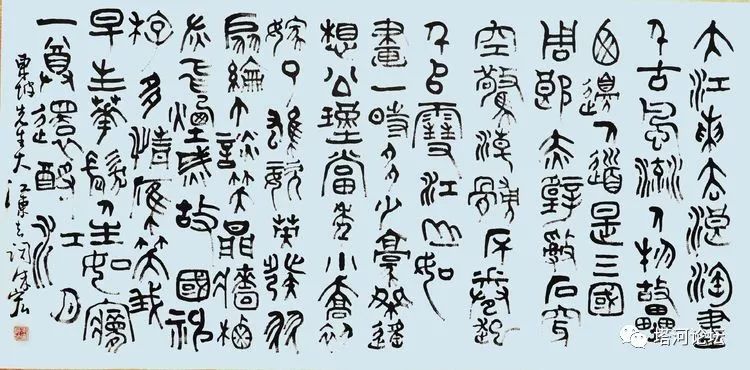 大江東去浪淘盡
千古風流人物故壘
西邊人道是三國
周郎赤壁石穿
空驚濤岸捲起
千堆雪江山如
畫一時多少豪傑遙
想公瑾當年小喬初
嫁了雄姿英發羽
扇綸巾談笑間檣櫓
灰飛煙滅故國神
遊多情應笑我
早生華髮人生如夢
一尊還酹江月
東坡先生大江東去詞
塔河论坛